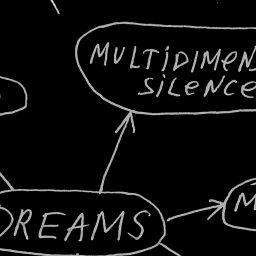 MULTIDIMEN
SiLENCE
DREAMS
M